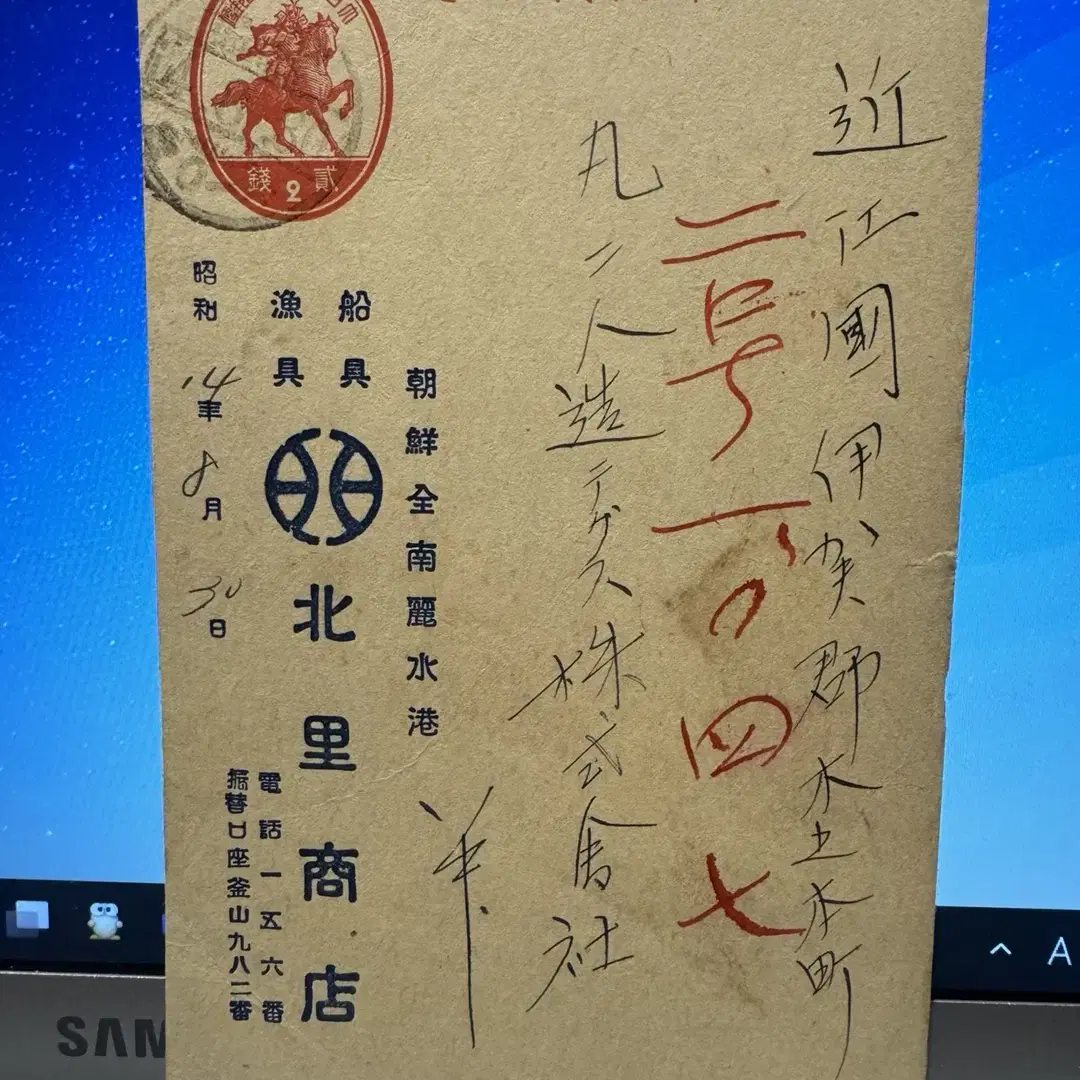 近江國伊賀郡木之本町
二号一、〇四七
丸二人造テグス株式會社
朝鮮全南麗水港
船具
漁具
北里商店
電話一五六番
振替口座釜山九八二番
昭和14年8月30日
錢2貳
SAM
A